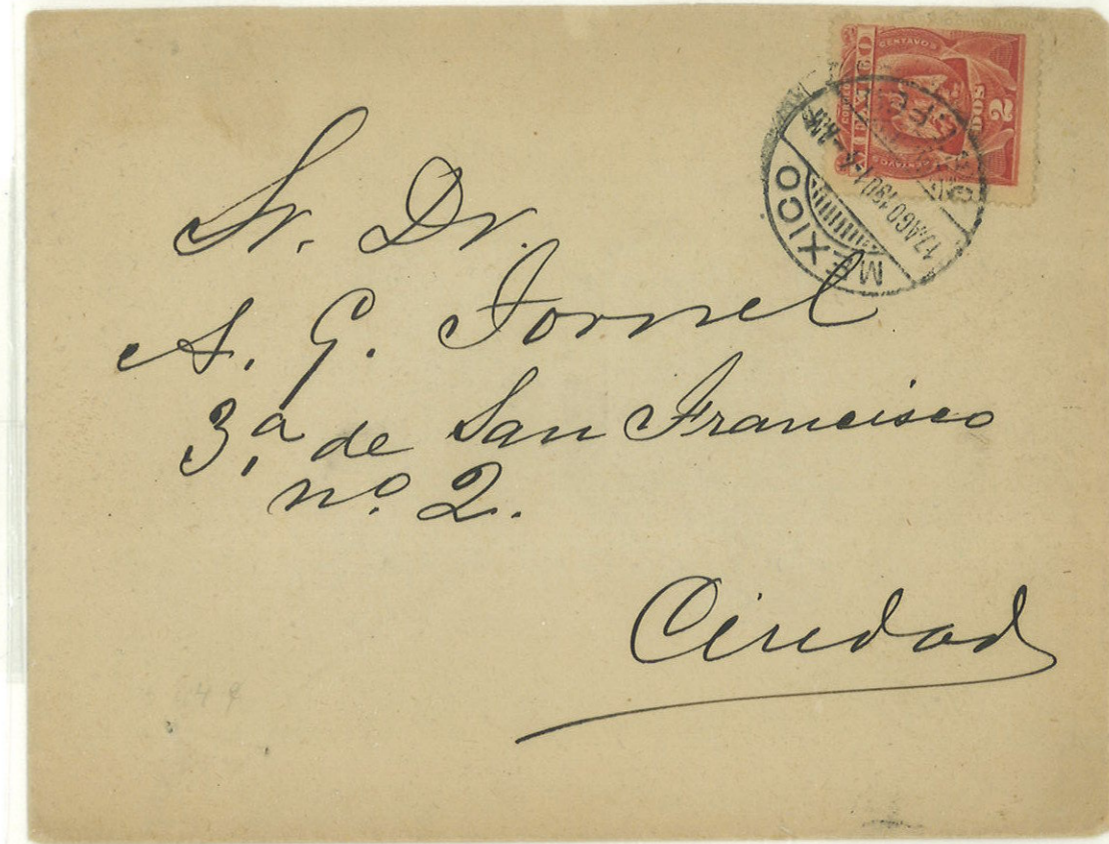 CENTAVOS
DOS
2
CENTAVOS
MEXICO
AGO 1901
Sr. Dr.
A. G. Fornel
3.ª de San Francisco
nº. 2.
Ciudad